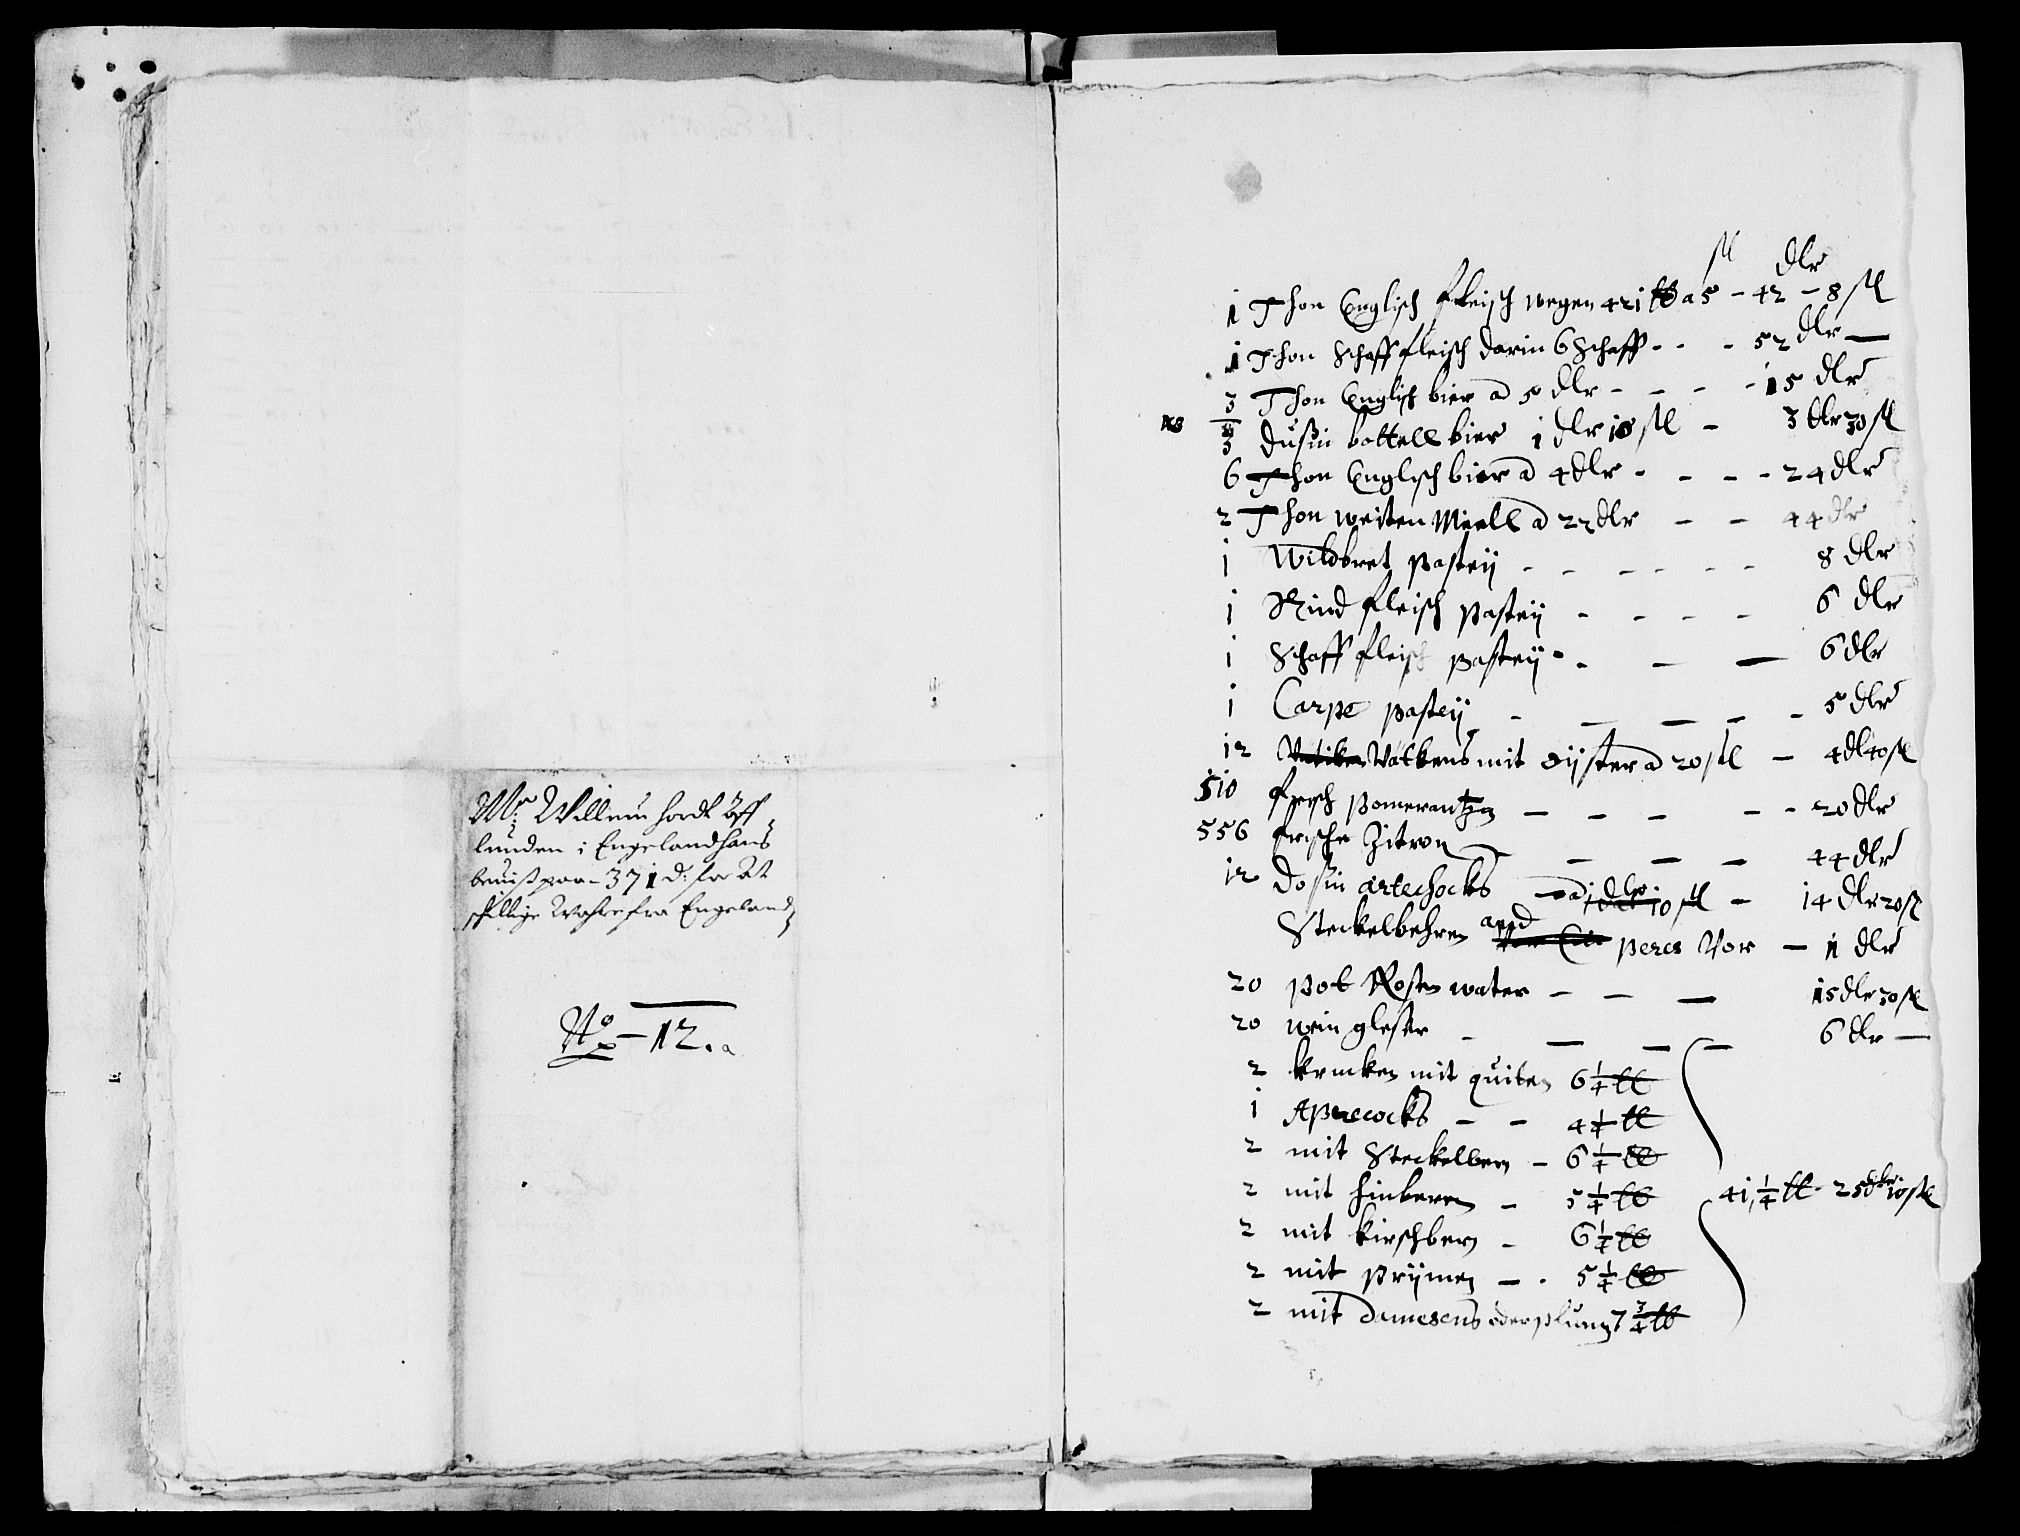 Mr: Willem hordt Öff
lunden i Engelandhans
beuiß paa 371 d: for att
skillige Wahre fra Engeland
No — 12. a
ſſ dlr
1 Thon Englisch fleisch wegen 421 ℔ a 5 – 42 – 8 ſſ
1 Thon Schaff fleisch darin 6 Schaff - - - 52 dlr —
3 Thon Englisch bier a 5 dlr - - - - 15 dlr
3 dußin bottell bier 1 dlr 10 ſſ – 3 dlr 30 ſſ
6 Thon Englisch bier a 4 dlr - - - - 24 dlr
2 Thon weiten Meell a 22 dlr - - 44 dlr
1 Wildbret pasteij - - - - - - 8 dlr
1 Rind fleisch pasteij - - - - 6 dlr
1 Schaff fleisch pasteij - - - — 6 dlr
1 Carpe pasteij - - - - - 5 dlr
12 Vatkens mit oijster a 20 ſſ – 4 dl 40 ſſ
510 frisch pomerantzen — - - - - 20 dlr
556 frische Zitron — - - - 44 dlr
12 doßin artechocks — a 1 dlr 10 ſſ – 14 dlr 20 ſſ
Steckelbehren and peres Vor — 1 dlr
20 pot Rosen water - - — 15 dlr 30 ſſ
20 wein gleser - — - - 6 dlr —
2 krucken mit quiten 6 1/4 ℔
1 Aprecocks - - 4 1/4 ℔
2 mit Steckelbern – 6 1/4 ℔
2 mit hinberen – 5 1/4 ℔ 41 1/4 ℔ - 25 dlr 10 ſſ
2 mit kirschbern – 6 1/4 ℔
2 mit prijmen - . 5 1/4 ℔
2 mit damesens oder plumen 7 3/4 ℔